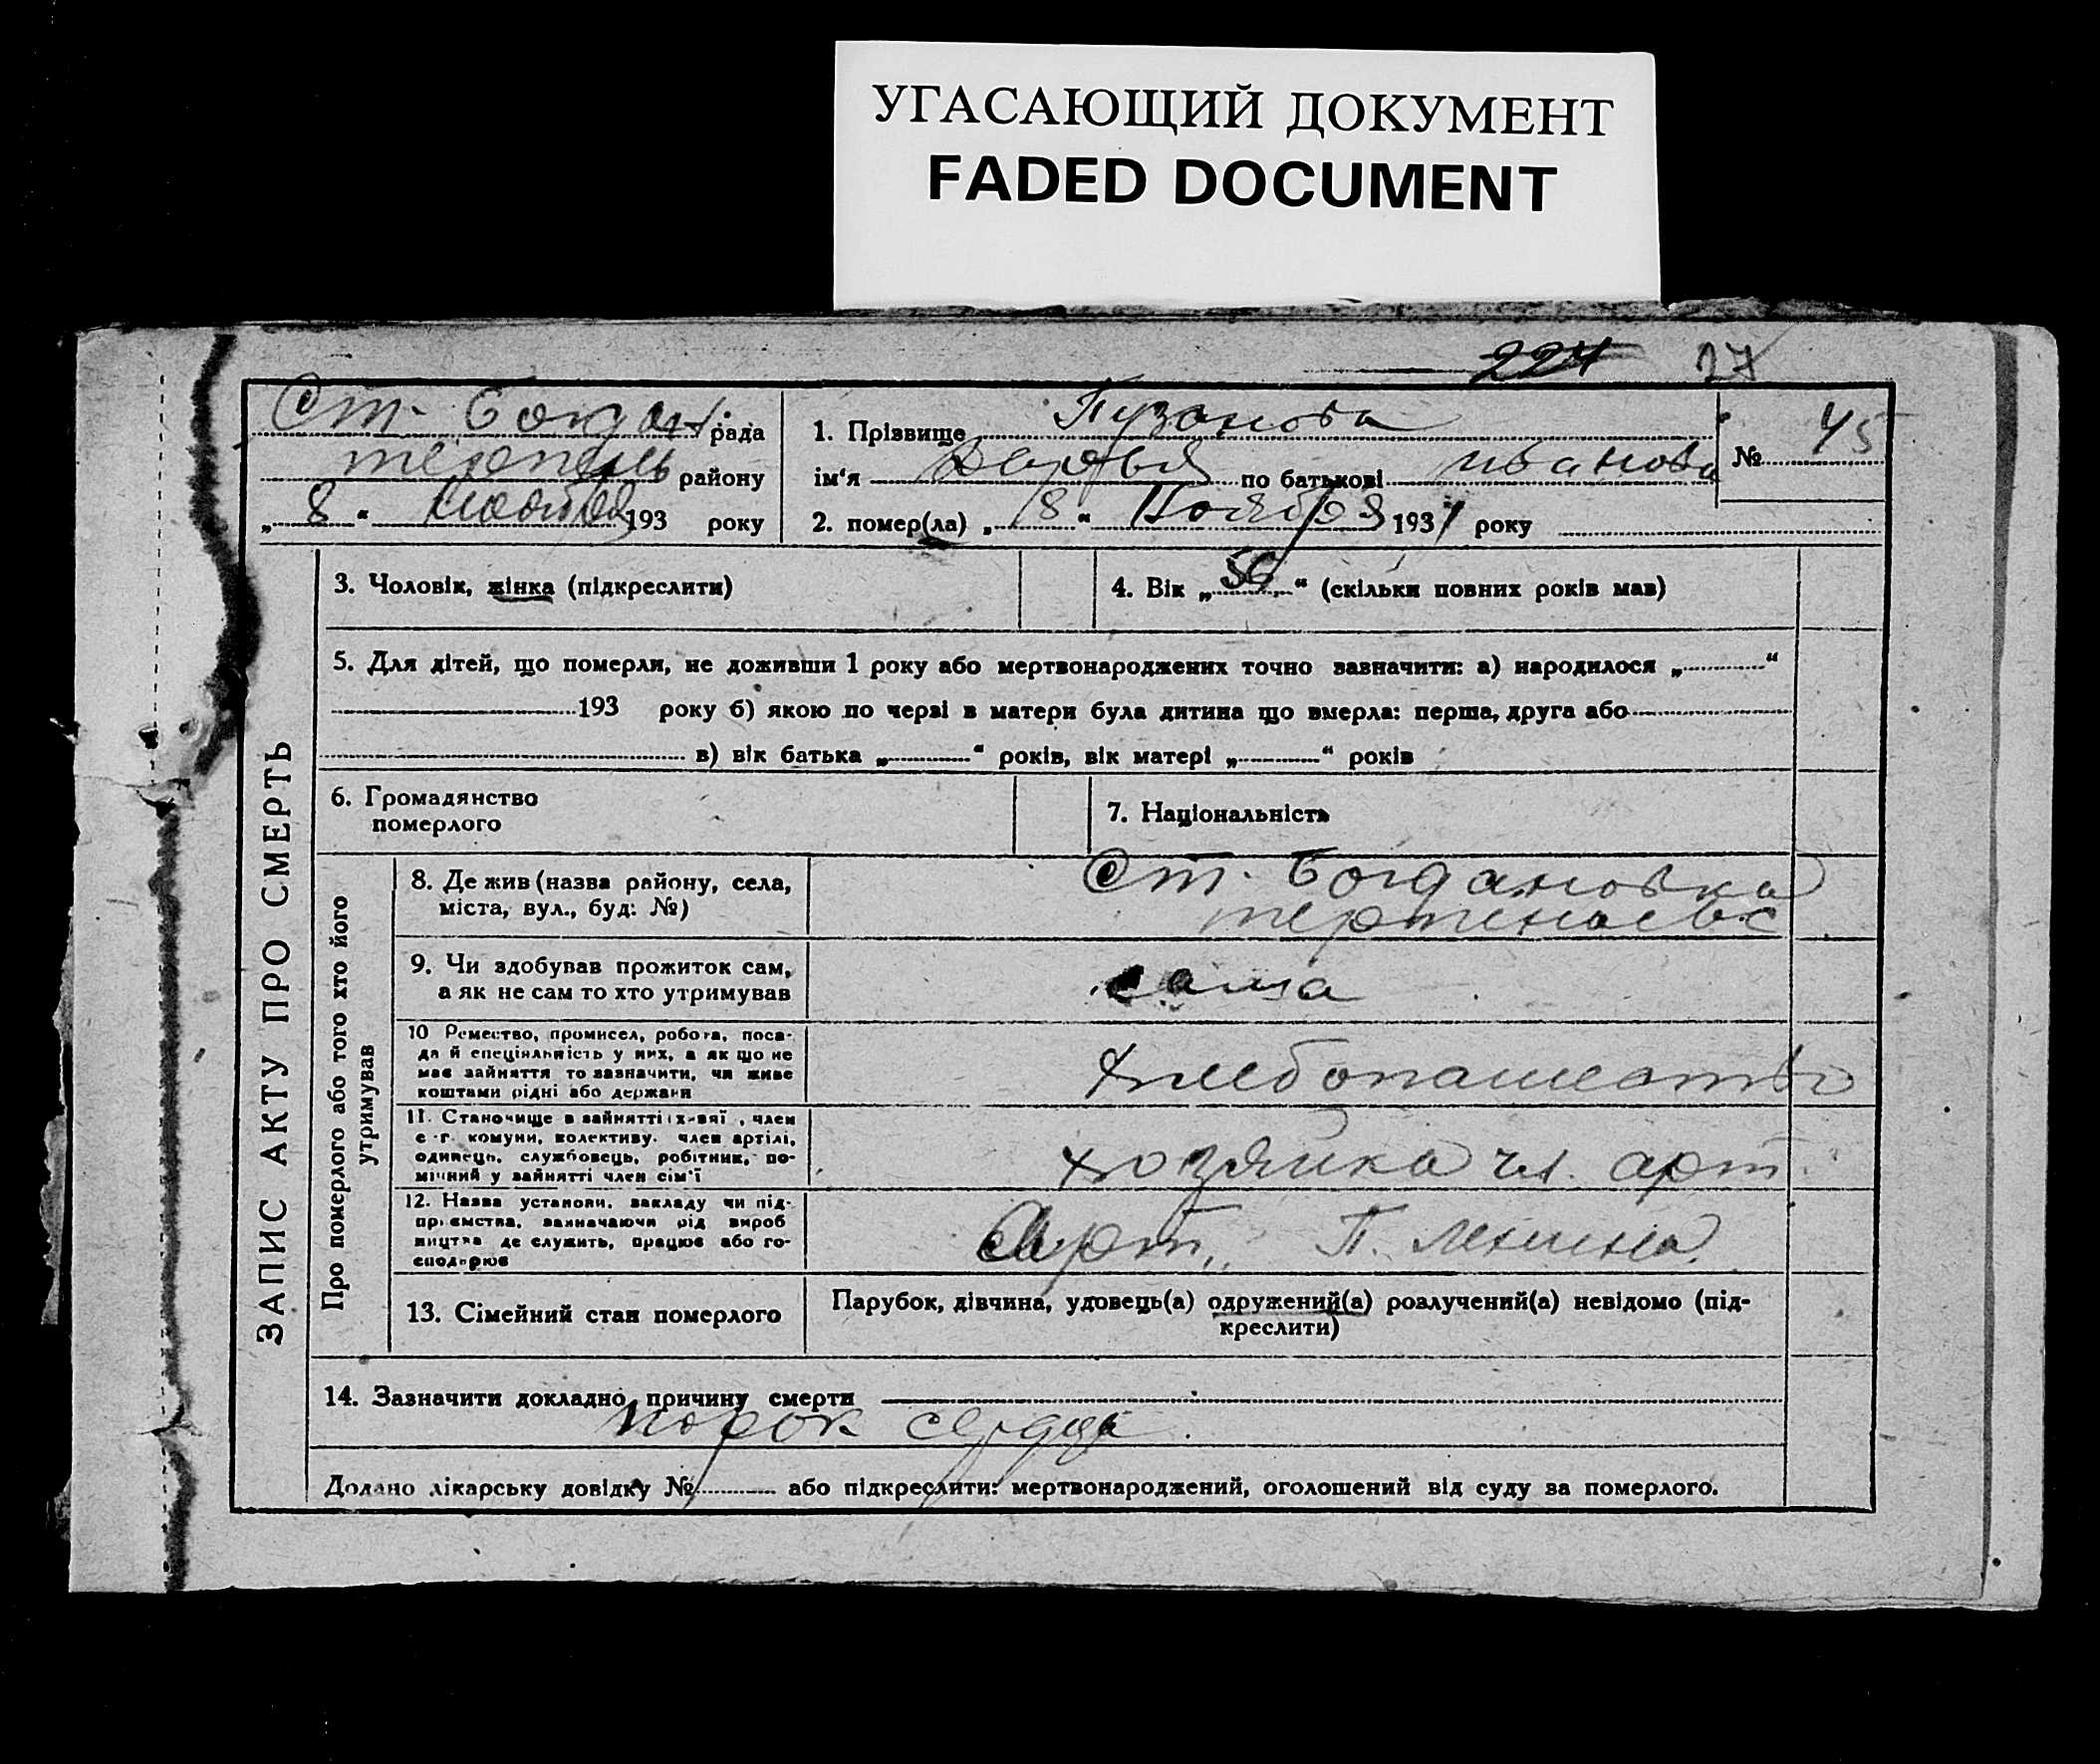 УГАСАЮЩИЙ ДОКУМЕНТ
FADED DOCUMENT
224 27
Ст. Богдан. рада
району
„ 8 “ ноября 193 року
1. Прізвище Пузанова
ім‘я Дарья по батькові Иванова
№ 45
2. помер(ла) „ 8 “ Ноября 1931 року
3. Чоловік, жінка (підкреслити)
4. Вік „ 56 “ (скільки повних років мав)
5. Для дітей, що померли, не доживши 1 року або мертвонароджених точно зазначити: а) народилося „ “
193 року б) якою по черзі в матери була дитина що вмерла: перша, друга або
в) вік батька „ “ років, вік матері „ “ років
6. Громадянство
померлого
7. Національність
ЗАПИС АКТУ ПРО СМЕРТЬ
Про померлого або того хто його
утримував
8. Де жив (назва району, села,
міста, вул., буд: №)
Ст. Богдановка
9. Чи здобував прожиток сам,
а як не сам то хто утримував
сама
10 Ремество, промисел, робота, поса-
да й спеціяльність у них, а як що не
має зайняття то зазначити, чи живе
коштами рідні або держави
хлебопашество
11. Становище в зайнятті , член
с-г. комуни, колективу. член артілі,
одинець, службовець, робітник, по-
мічний у зайнятті член сім‘ї
хозяйка чл. арт.
12. Назва установи, закладу чи під-
приємства, зазначаючи рід вироб
ництва де служить, працює або го-
сподарює
Арт. П. Ленина.
13. Сімейний стан померлого
Парубок, дівчина, удовець(а) одружений(а) розлучений(а) невідомо (під-
креслити)
14. Зазначити докладно причину смерти
порок сердца.
Додано лікарську довідку № або підкреслити: мертвонароджений, оголошений від суду за померлого.